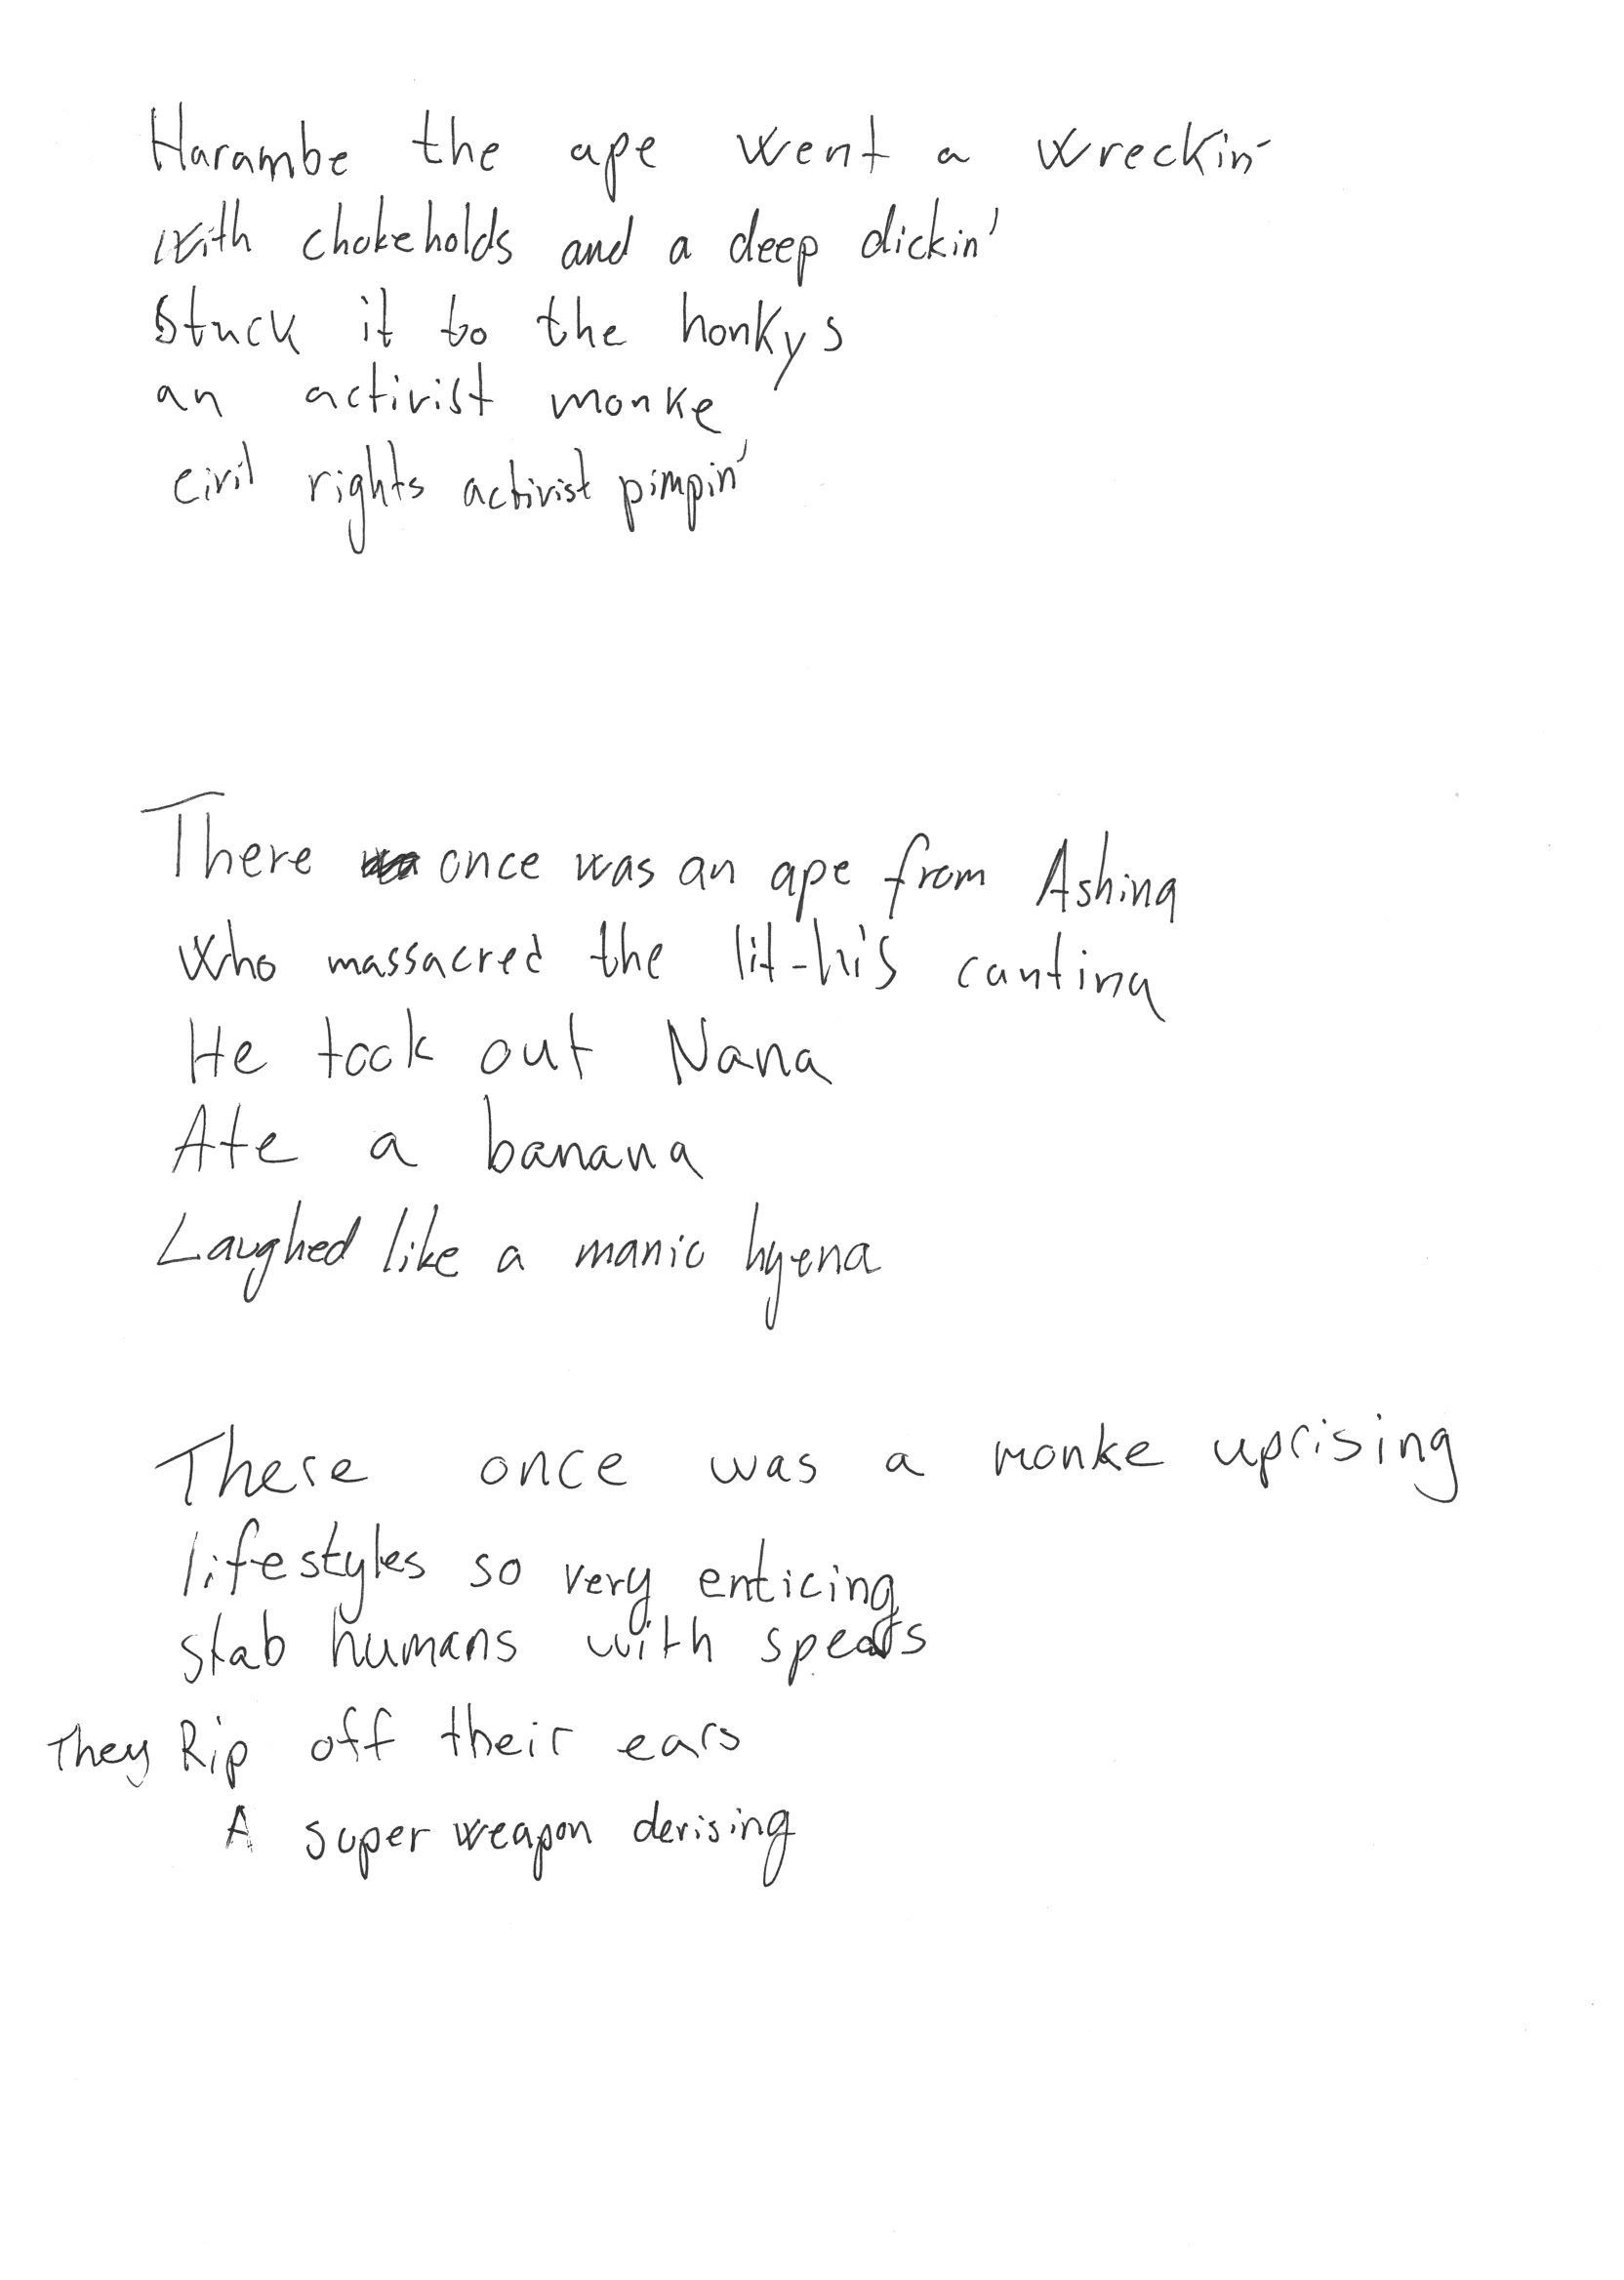 Harambe the ape went a wreckin'
with chokeholds and a deep dickin'
Stuck it to the honkys
an activist monke
civil rights activist pimpin'
There once was an ape from Ashina
Who massacred the lit-hi's cantina
He took out Nana
Ate a banana
Laughed like a manic hyena
There once was a monke uprising
lifestyles so very enticing
stab humans with spears
They Rip off their ears
A super weapon devising